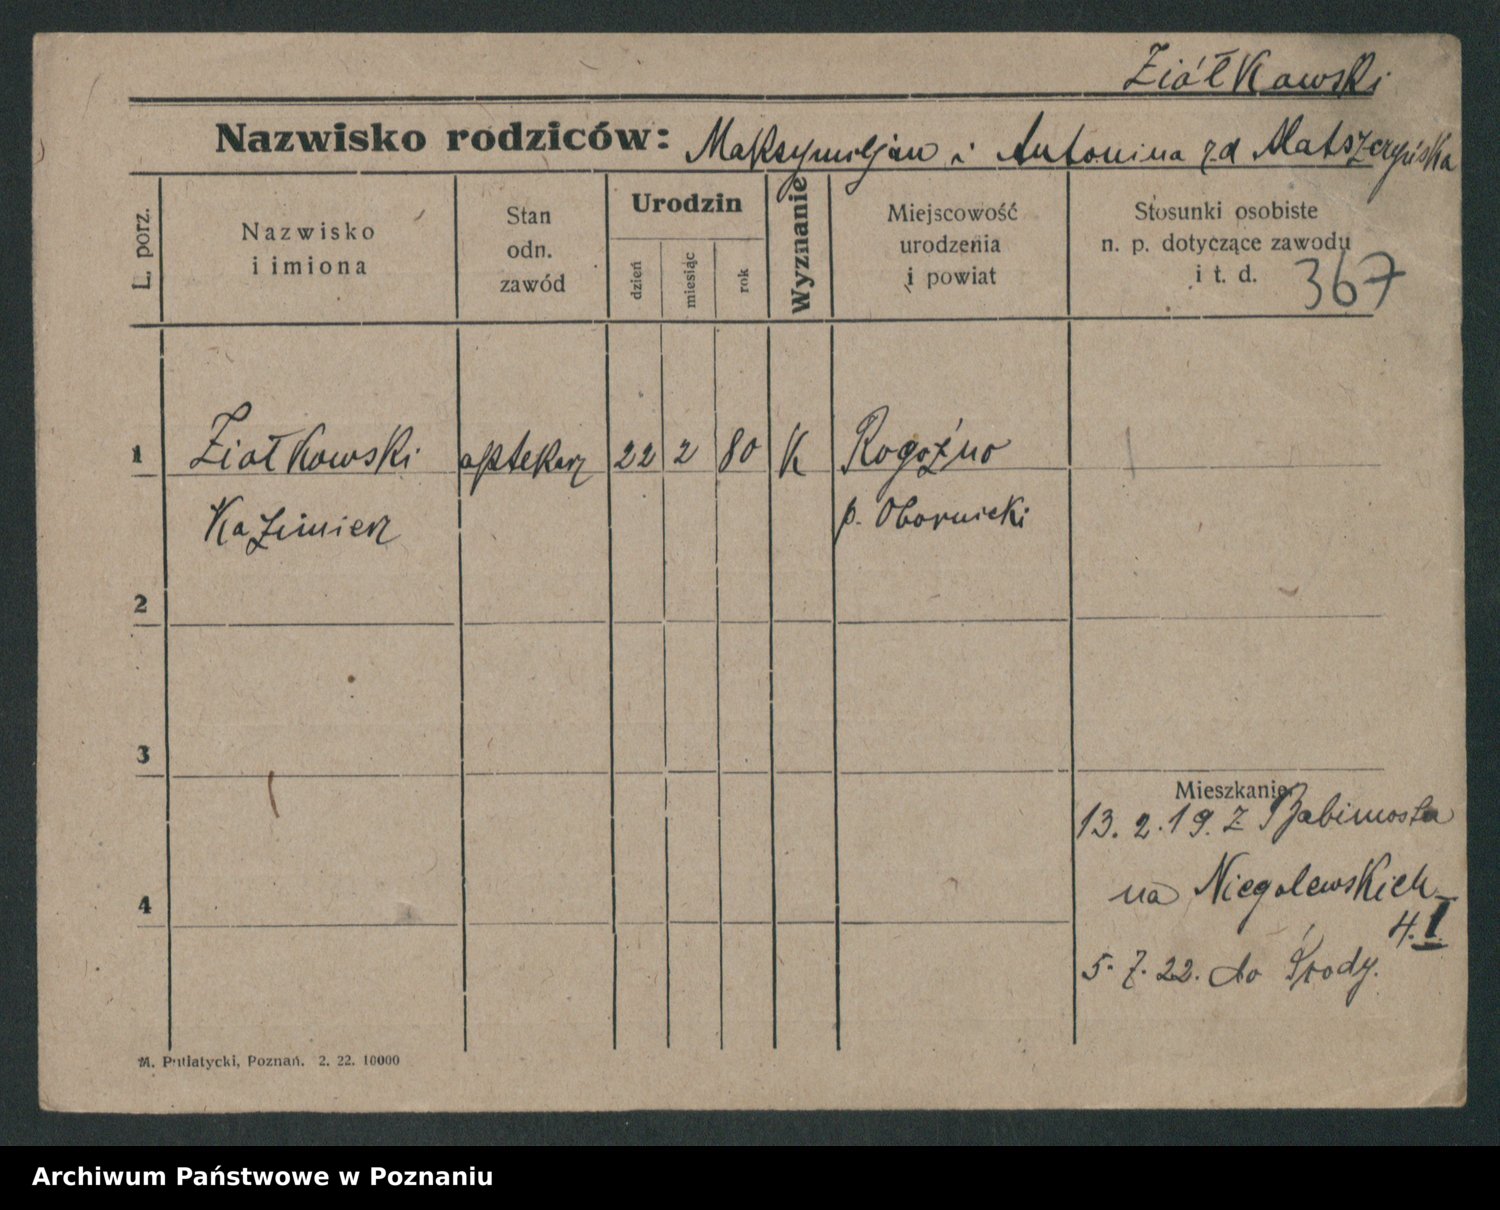 Ziółkowski
Nazwisko rodziców: Maksymiljan i Antonina z d Matszczyńska
L. porz.
Nazwisko
i imiona
Stan
odn.
zawód
Urodzin
dzień
miesiąc
rok
Wyznanie
Miejscowość
urodzenia
i powiat
Stosunki osobiste
n. p. dotyczące zawodu
i t. d.
367
1 Ziołkowski aptekarz 22 2 80 K Rogoźno
Kazimierz p. Obornicki
2
3
Mieszkanie
13. 2. 19. z Babimosta
na Niegolewskich
4
4. I.
5. 7. 22. do Środy.
M. Putiatycki, Poznań. 2. 22. 10000
Archiwum Państwowe w Poznaniu